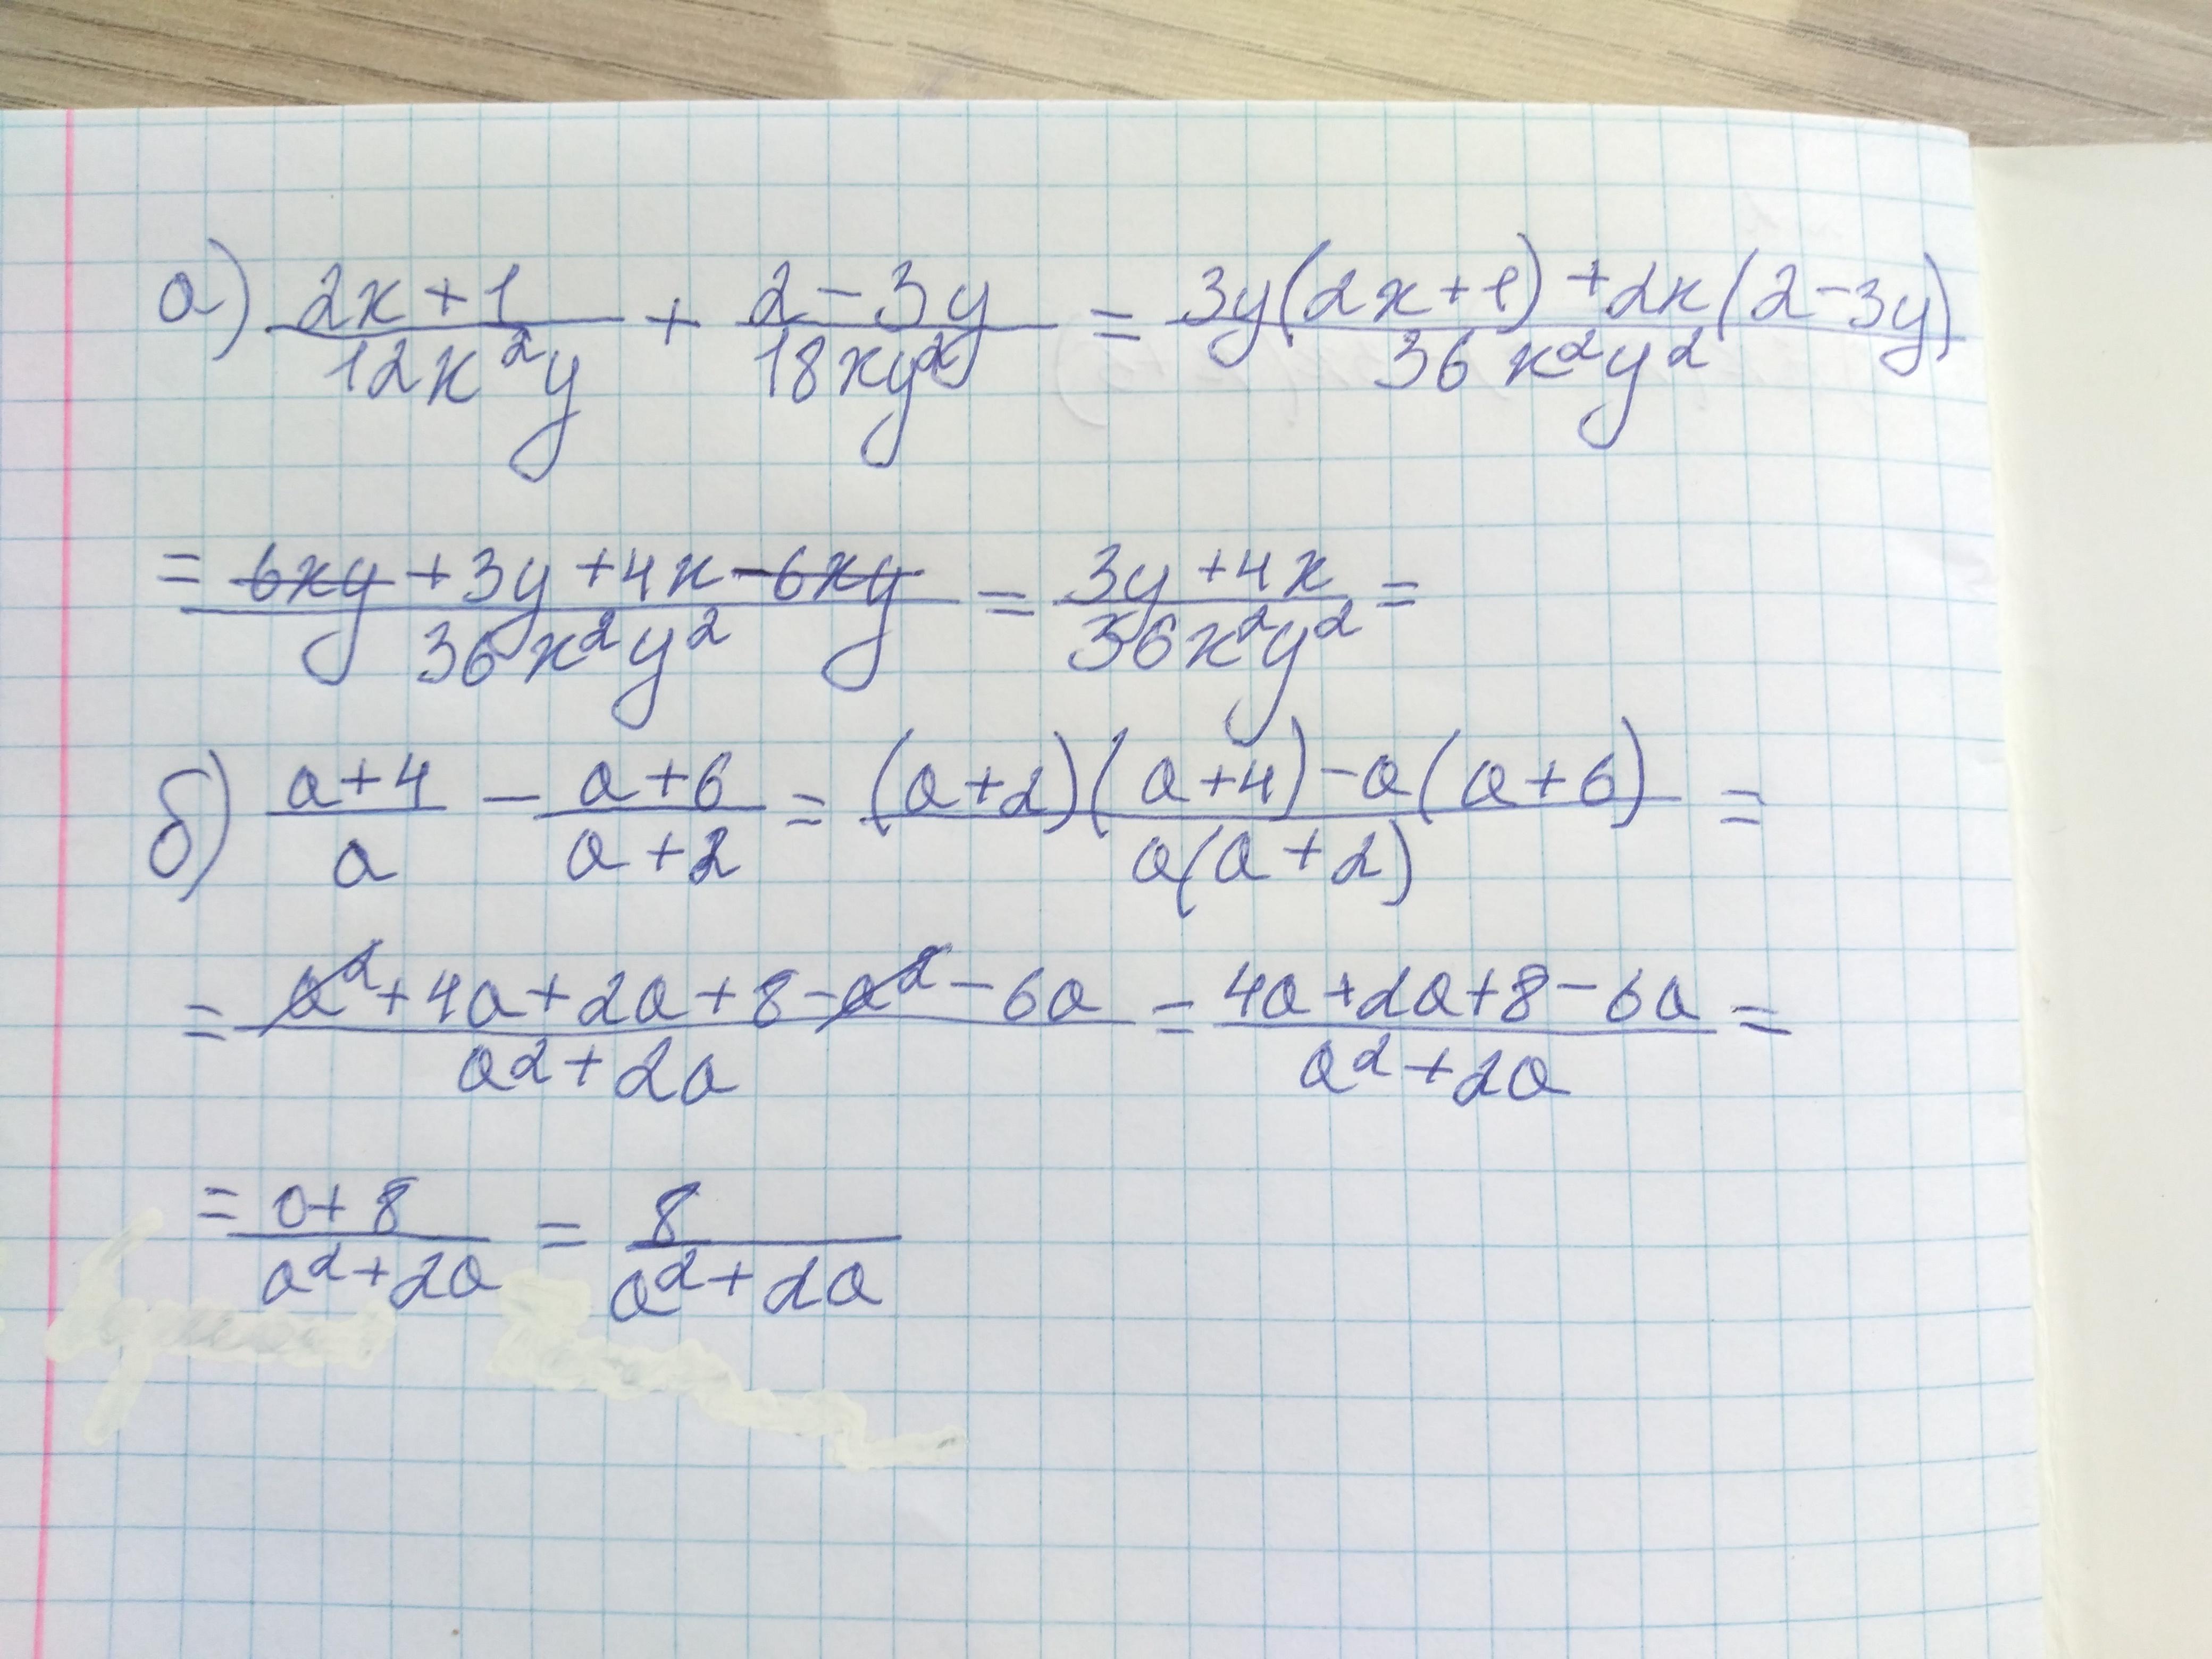 а) (2x+1)/(12x²y) + (2-3y)/(18xy²) = (3y(2x+1)+2x(2-3y))/(36x²y²)
= (6xy+3y+4x-6xy)/(36x²y²) = (3y+4x)/(36x²y²) =
б) (a+4)/a - (a+6)/(a+2) = ((a+2)(a+4)-a(a+6))/(a(a+2)) =
= (a²+4a+2a+8-a²-6a)/(a²+2a) = (4a+2a+8-6a)/(a²+2a) =
= (0+8)/(a²+2a) = 8/(a²+2a)